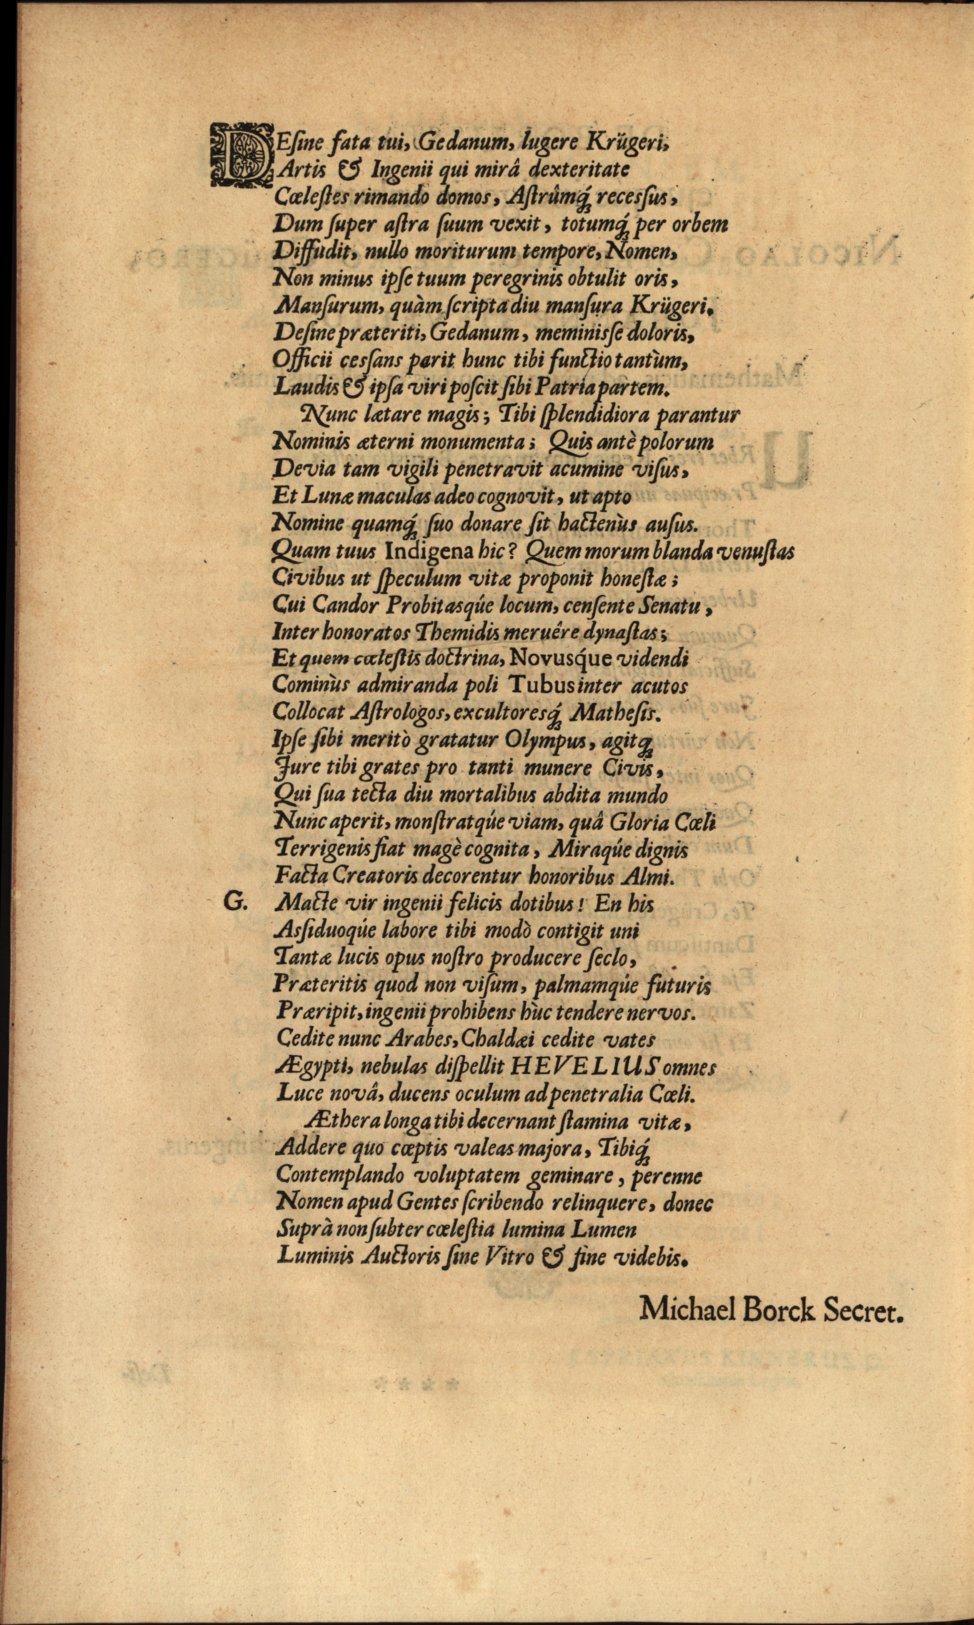 DEſine fata tui, Gedanum, lugere Krügeri,
Artis & Ingenii qui mirâ dexteritate
Cœleſtes rimando domos, Aſtrûmq́ꝫ recessus,
Dum ſuper aſtra ſuum vexit, totumq́ꝫ per orbem
Diffudit, nullo moriturum tempore, Nomen,
Non minus ipſe tuum peregrinis obtulit oris,
Manſurum, quàm ſcripta diu manſura Krügeri.
Deſine præteriti, Gedanum, meminiſſe doloris,
Officii ceſſans parit hunc tibi functio tantùm,
Laudis & ipſa viri poſcit ſibi Patria partem.
Nunc lætare magis; Tibi ſplendidiora parantur
Nominis æterni monumenta; Quis antè polorum
Devia tam vigili penetravit acumine viſus,
Et Lunæ maculas adeo cognovit, ut apto
Nomine quamq́ꝫ ſuo donare ſit hactenùs auſus.
Quam tuus Indigena hic? Quem morum blanda venuſtas
Civibus ut ſpeculum vitæ proponit honeſtæ;
Cui Candor Probitasqúe locum, cenſente Senatu,
Inter honoratos Themidis meruêre dynaſtas;
Et quem cœleſtis doctrina, Novusq́ue videndi
Cominùs admiranda poli Tubus inter acutos
Collocat Aſtrologos, excultoresq́ꝫ Matheſis.
Ipſe ſibi meritò gratatur Olympus, agitqꝫ
Jure tibi grates pro tanti munere Civis,
Qui ſua tecta diu mortalibus abdita mundo
Nunc aperit, monſtratqúe viam, quâ Gloria Cœli
Terrigenis fiat magè cognita, Miraqúe dignis
Facta Creatoris decorentur honoribus Almi.
G. Macte vir ingenii felicis dotibus! En his
Aſſiduoqúe labore tibi modò contigit uni
Tantæ lucis opus noſtro producere ſeclo,
Præteritis quod non viſum, palmamqúe futuris
Præripit, ingenii prohibens hùc tendere nervos.
Cedite nunc Arabes, Chaldæi cedite vates
Ægypti, nebulas diſpellit HEVELIUS omnes
Luce novâ, ducens oculum ad penetralia Cœli.
Æthera longa tibi decernant ſtamina vitæ,
Addere quo cœptis valeas majora, Tibiq́ꝫ
Contemplando voluptatem geminare, perenne
Nomen apud Gentes ſcribendo relinquere, donec
Suprà non ſubter cœleſtia lumina Lumen
Luminis Auctoris ſine Vitro & fine videbis.
Michael Borck Secret.